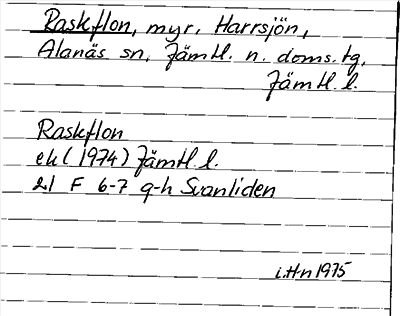 Raskflon, myr, Harrsjön,
Alanäs sn, Jämtl. n. doms. tg,
Jämtl. l.
Raskflon
ek (1974) Jämtl l.
21 F 6-7 g-h Svanliden
i.Hn 1975